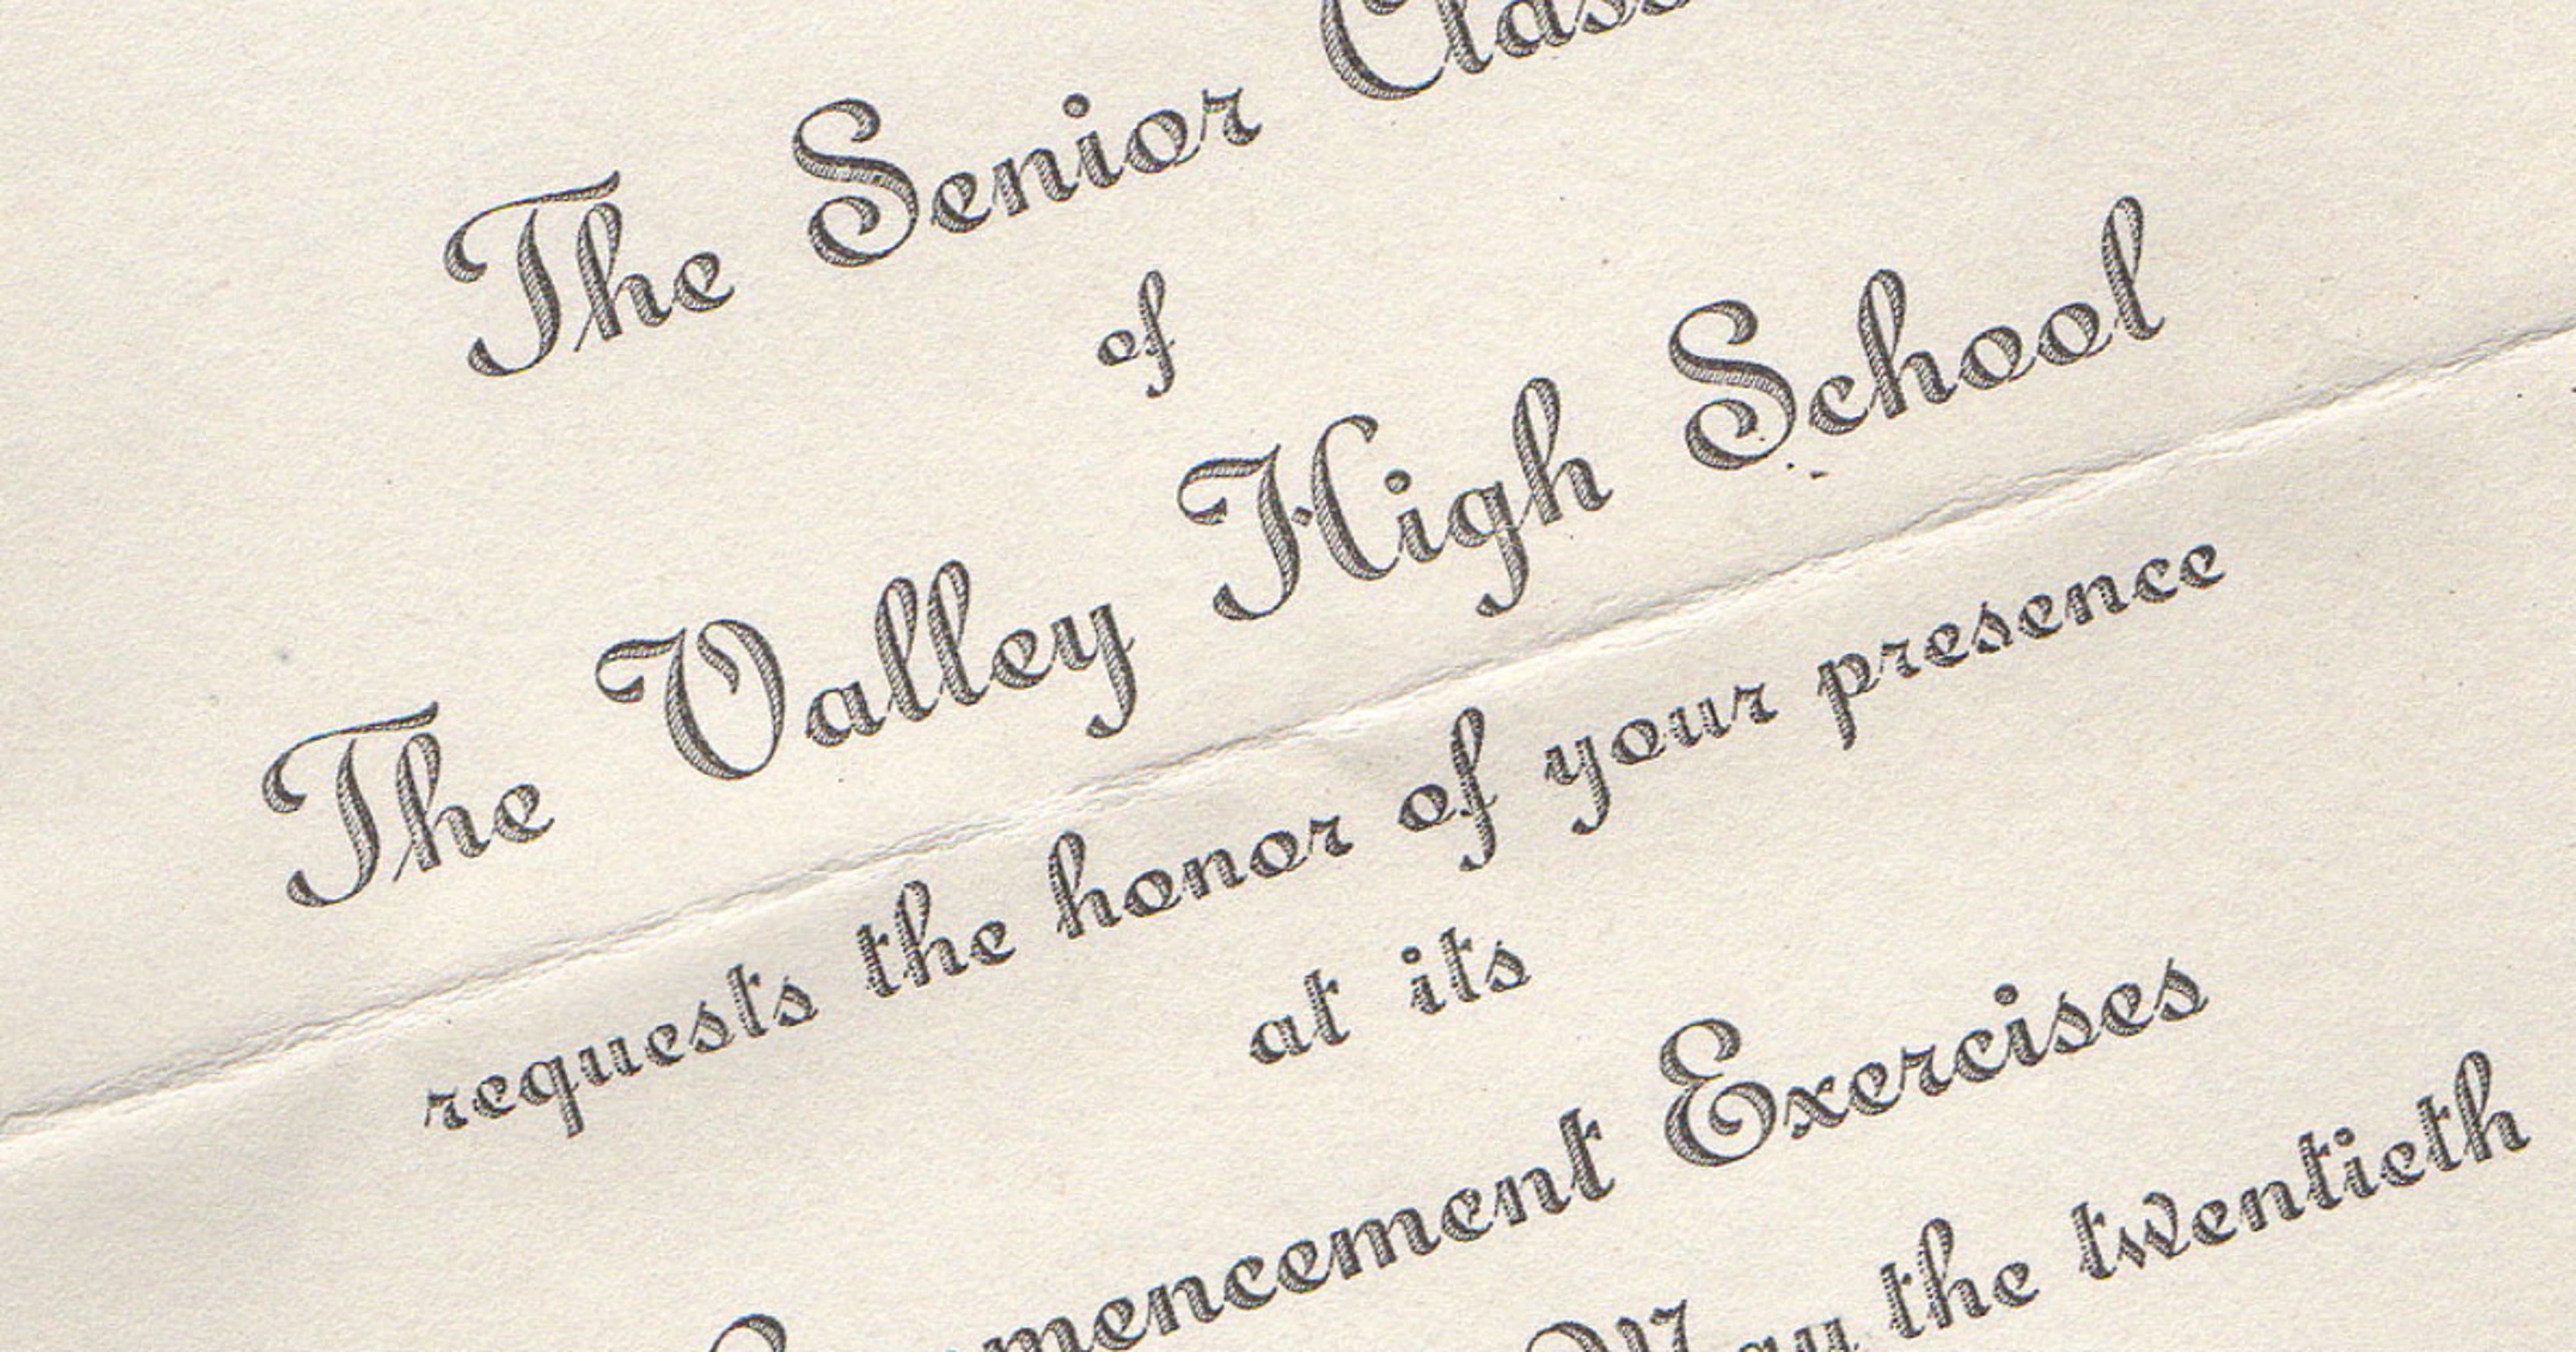 The Senior Class
of
The Valley High School
requests the honor of your presence
at its
Commencement Exercises
May the twentieth